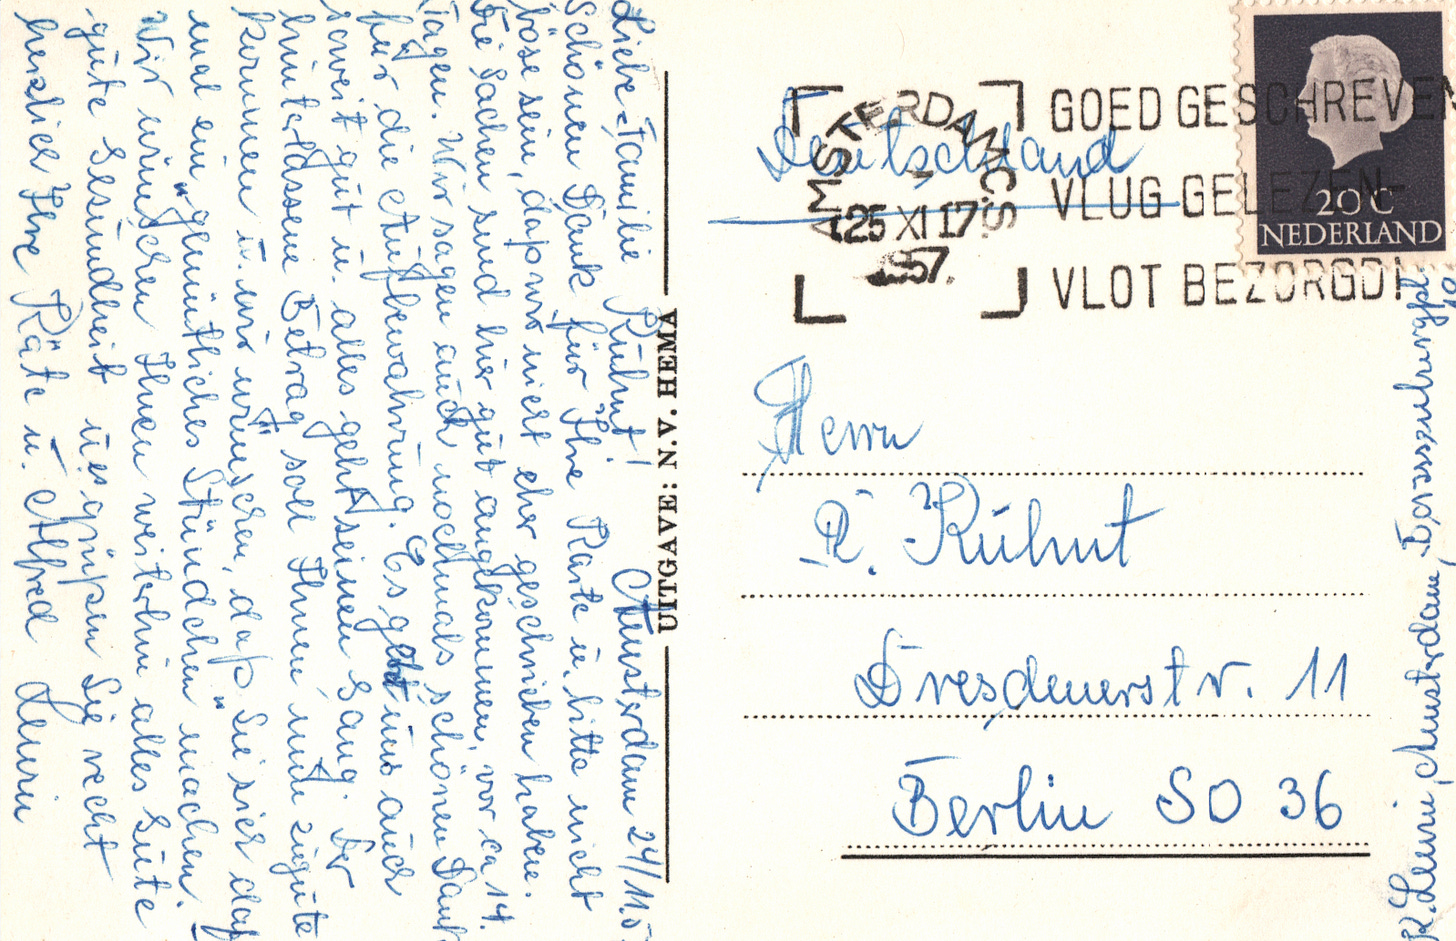 Amsterdam 24/11.5
Liebe Familie Kühnt!
Schönen Dank für Ihre Karte u. bitte nicht
böse sein, daß wir nicht eher geschrieben haben.
Die Sachen sind hier gut angekommen, vor ca 14.
Tagen. Wir sagen auch nochmals schönen Dank
für die Aufbewahrung. Es geht uns auch
soweit gut u. alles geht seinen Gang. Der
hinterlassene Betrag soll Ihnen mit zugute
kommen u. wir wünschen, daß Sie sich daf
mal ein "gemütliches Stündchen" machen.
Wir wünschen Ihnen weiterhin alles Gute
gute Gesundheit u. grüßen Sie recht
herzlich Ihre Käte u. Alfred Lewin
UITGAVE: N.V. HEMA
Deutschland
AMSTERDAM C.S
25 XI 17
1957
GOED GESCHREVEN
VLUG GELEZEN-
VLOT BEZORGD!
20 C
NEDERLAND
Herrn
R. Kühnt
Dresdenerstr. 11
Berlin SO 36
K. Lewin, Amsterdam,